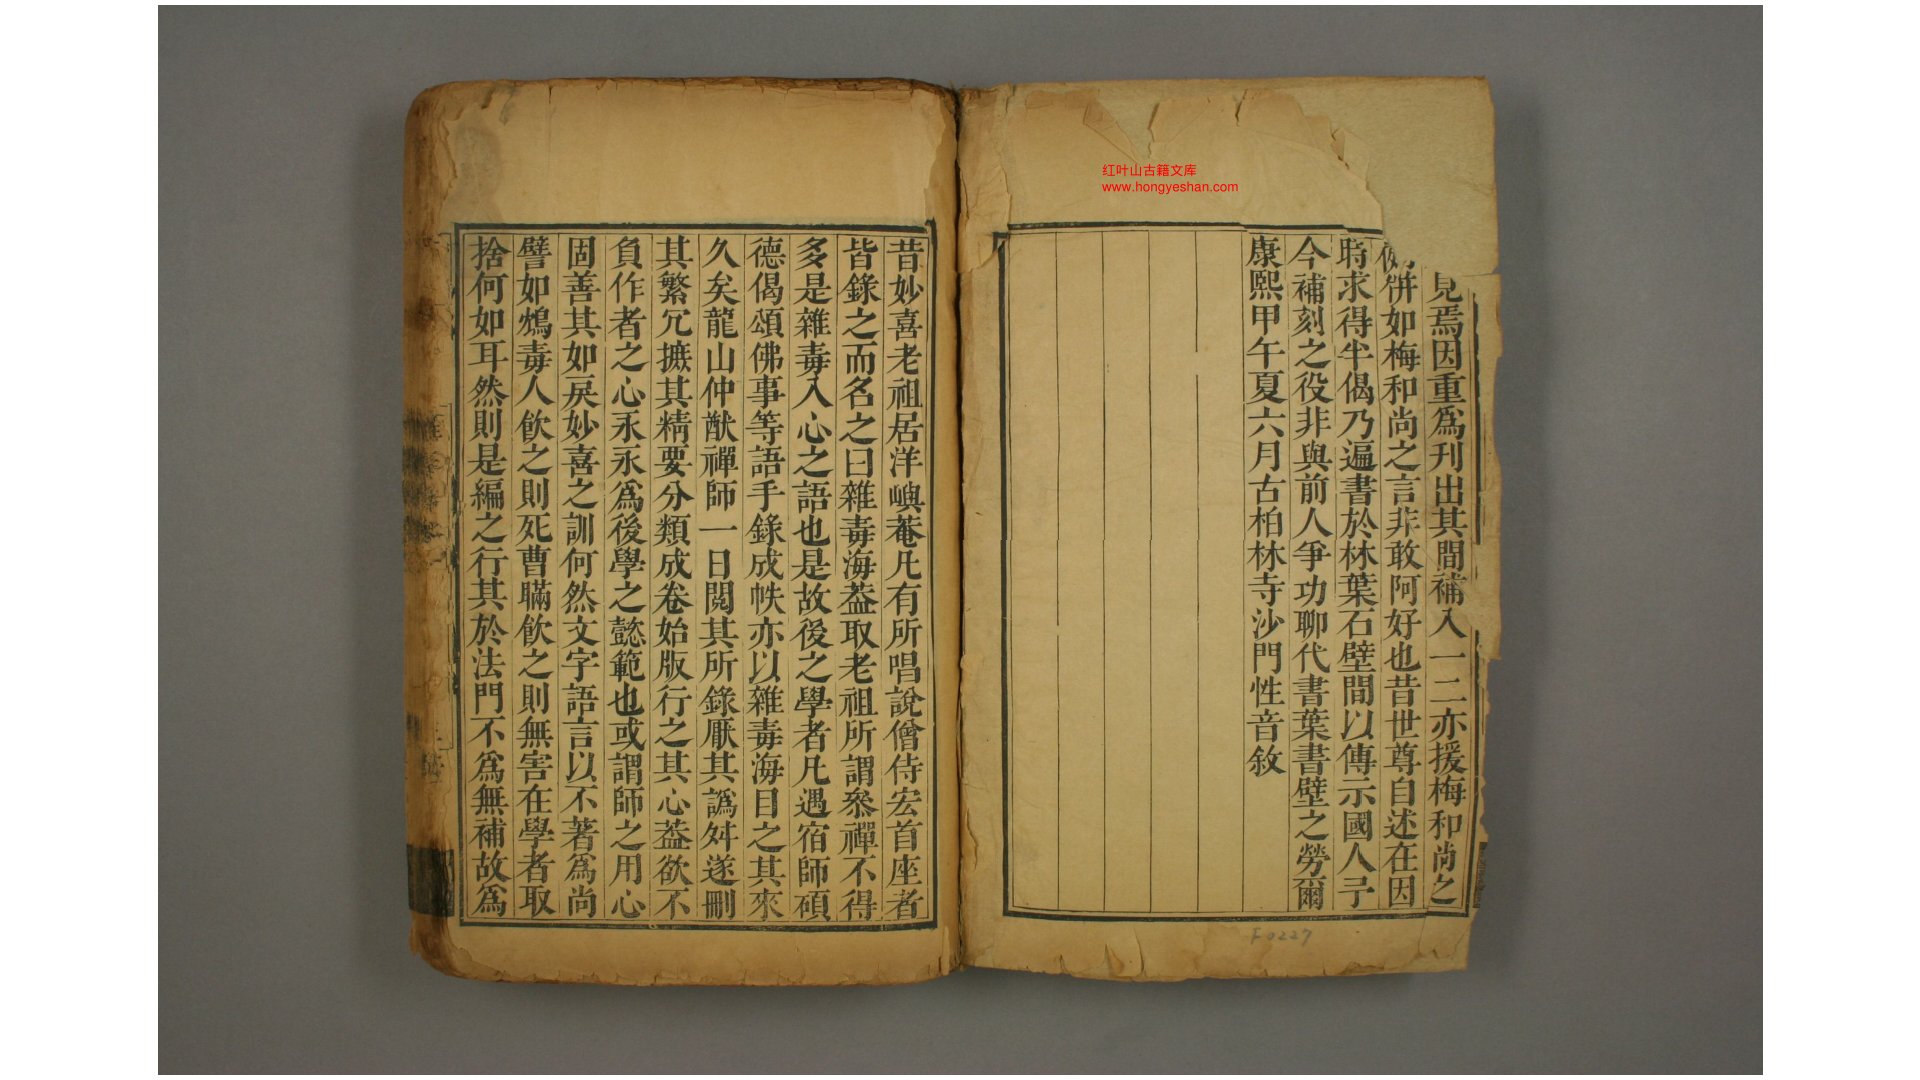 红叶山古籍文库
www.hongyeshan.com
見焉因重爲刋出其間補入一二亦援梅和尚之
例餠如梅和尚之言非敢阿好也昔世尊自述在因
時求得半偈乃遍書於林葉石壁間以傳示國人予
今補刻之役非與前人爭功聊代書葉書壁之勞爾
康熙甲午夏六月古柏林寺沙門性音敘
F0227
昔妙喜老祖居洋嶼菴凡有所唱說僧侍宏首座者
皆錄之而名之曰雜毒海葢取老祖所謂叅禪不得
多是雜毒入心之語也是故後之學者凡遇宿師碩
德偈頌佛事等語手錄成帙亦以雜毒海目之其來
久矣龍山仲猷禪師一日閱其所錄厭其譌舛遂刪
其繁冗摭其精要分類成卷始版行之其心葢欲不
負作者之心永永爲後學之懿範也或謂師之用心
固善其如戾妙喜之訓何然文字語言以不著爲尚
譬如鴆毒人飮之則死曹瞞飮之則無害在學者取
捨何如耳然則是編之行其於法門不爲無補故爲